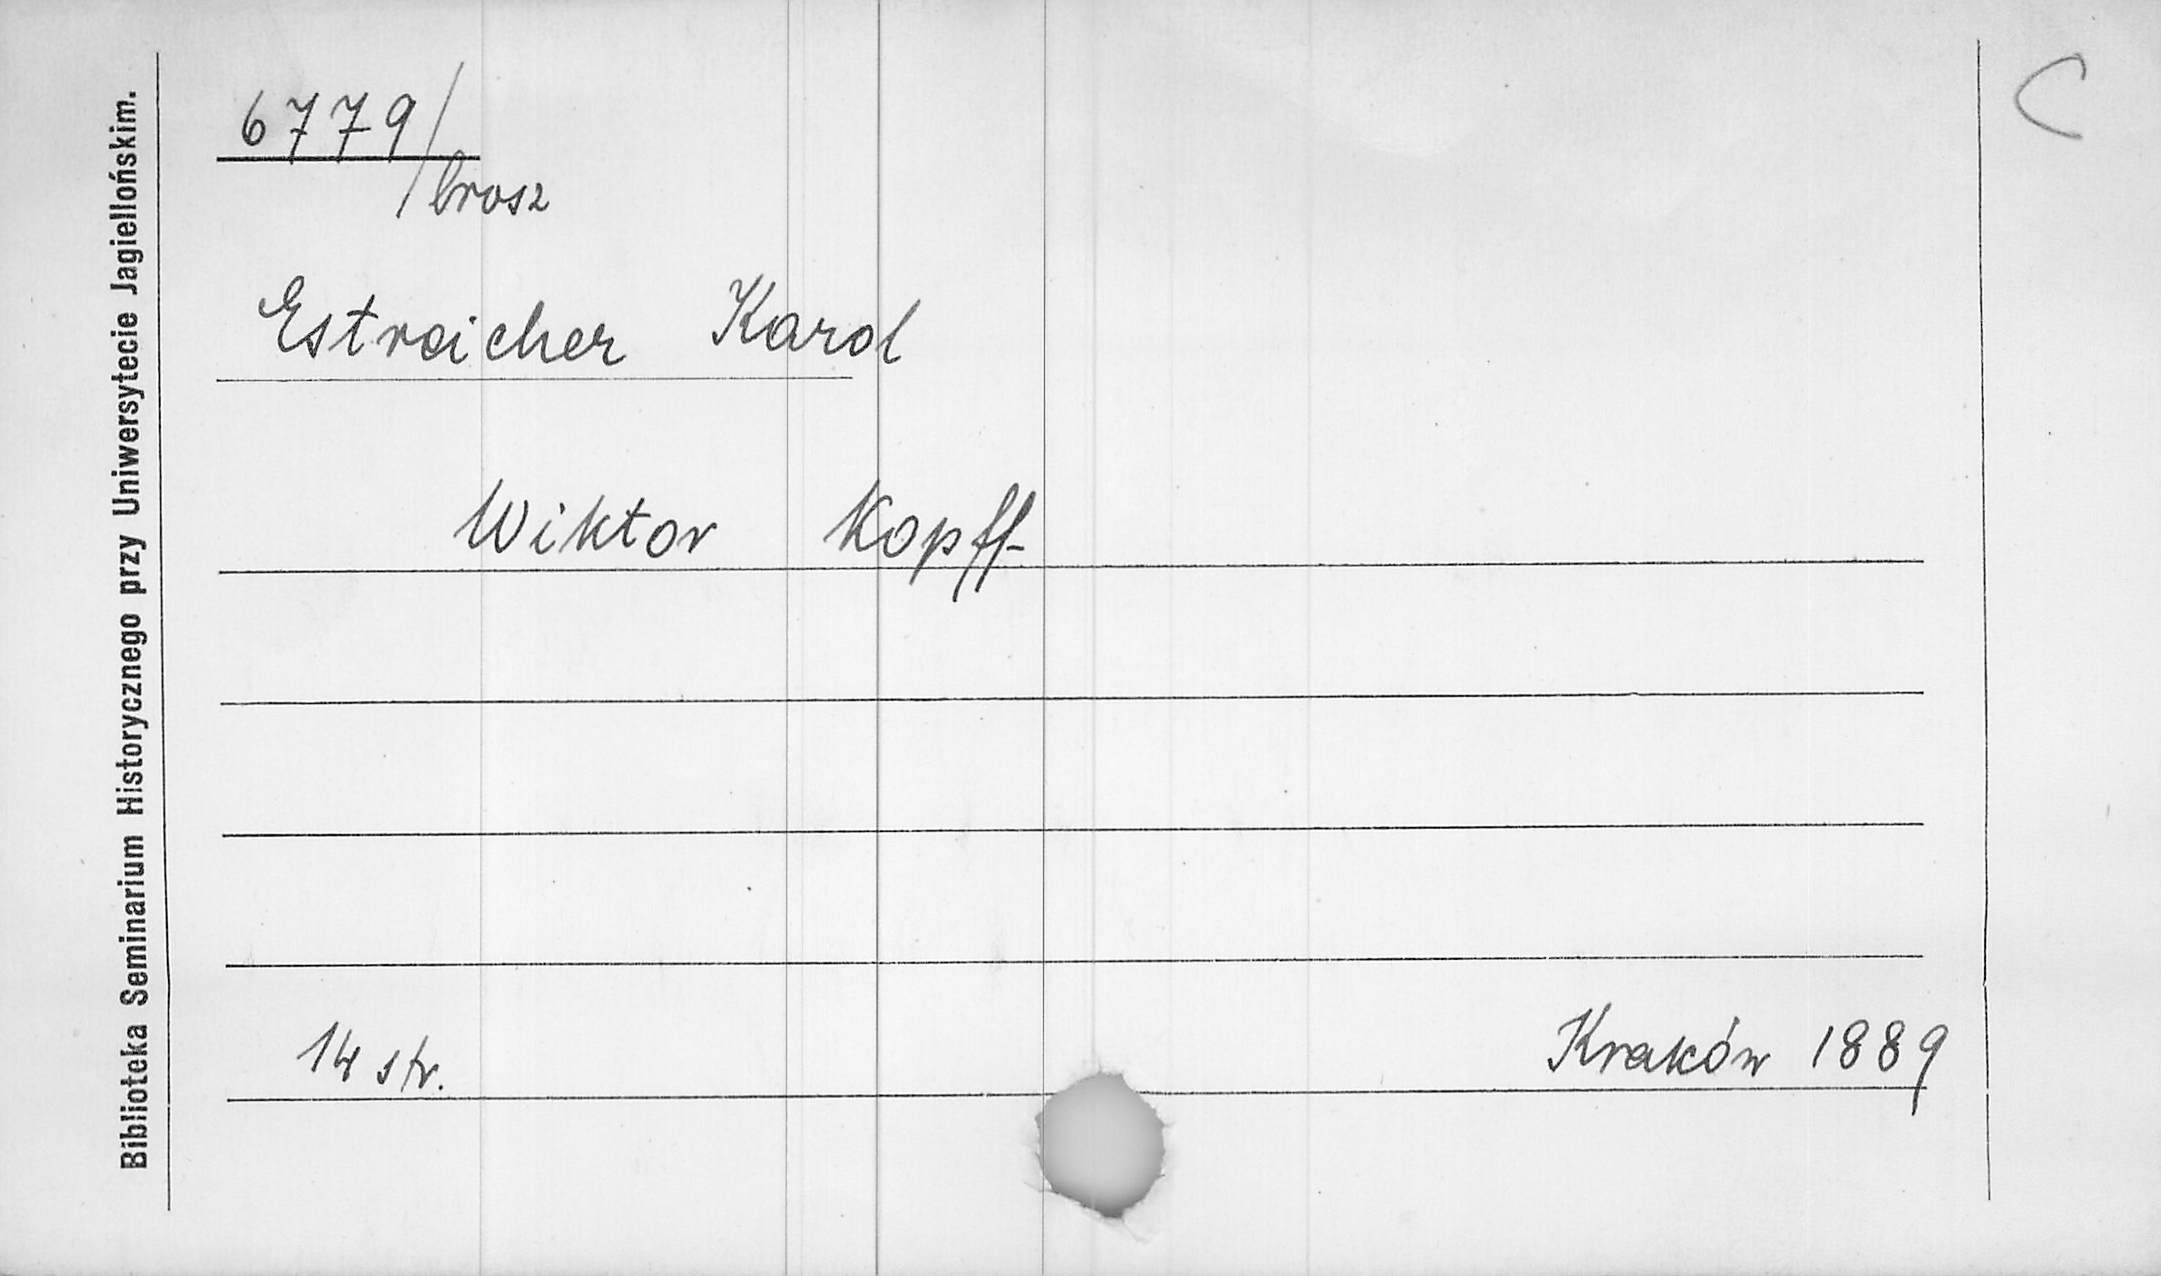 6779/brosz
C
Estreicher Karol
Wiktor Kopff
14 str.
Kraków 1889
Biblioteka Seminarium Historycznego przy Uniwersytecie Jagiellońskim.